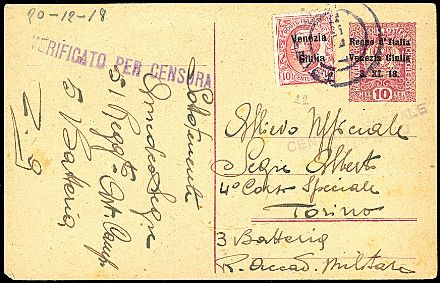 20-12-18
VERIFICATO PER CENSURA
Venezia
Giulia
10 CENT 10
Regno d'Italia
Venezia Giulia
3. XI. 18.
10
Sottotenente
Segre
51 Reggto Art. Camp.
5 Batteria
Z. 9
22
Allievo Ufficiale
Segre Alberto
4° Corso Speciale
Torino
3 Batteria
R. Accad. Militare